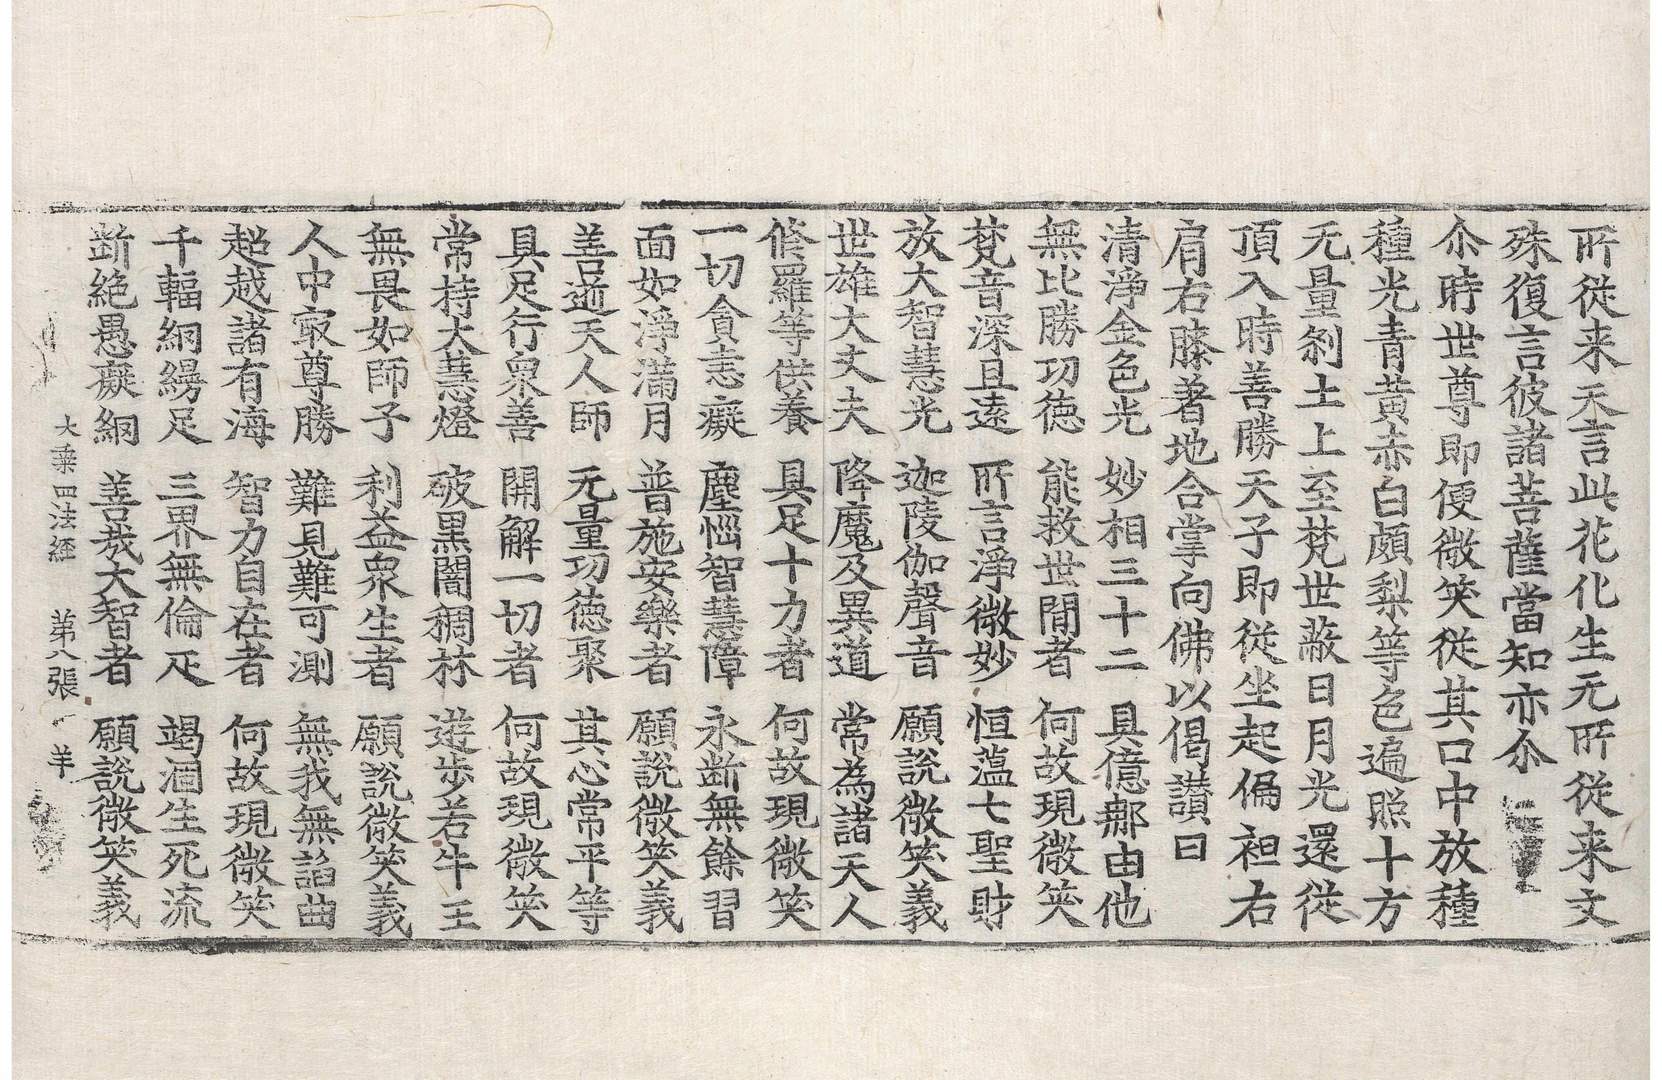 所從来天言此花化生无所從来文
殊復言彼諸菩薩當知亦尒
尒時世尊即便微笑從其口中放種
種光青黃赤白頗梨等色遍照十方
无量剎土上至梵世蔽日月光還從
頂入時善勝天子即從坐起偏袒右
肩右膝著地合掌向佛以偈讃曰
清淨金色光 妙相三十二 具億那由他
無比勝功德 能救世閒者 何故現微笑
梵音深且遠 所言淨微妙 恒薀七聖財
放大智慧光 迦陵伽聲音 願說微笑義
世雄大丈夫 降魔及異道 常為諸天人
脩羅等供養 具足十力者 何故現微笑
一切貪恚癡 塵惱智慧障 永断無餘習
面如淨滿月 普施安樂者 願說微笑義
善逝天人師 无量功德聚 其心常平等
具足行衆善 開解一切者 何故現微笑
常持大慧燈 破黑闇稠林 遊步若牛王
無畏如師子 利益衆生者 願說微笑義
人中㝡尊勝 難見難可測 無我無諂曲
超越諸有海 智力自在者 何故現微笑
千輻網縵足 三界無倫疋 竭涸生死流
断絶愚癡網 善哉大智者 願說微笑義
大乗四法経 第八張 羊